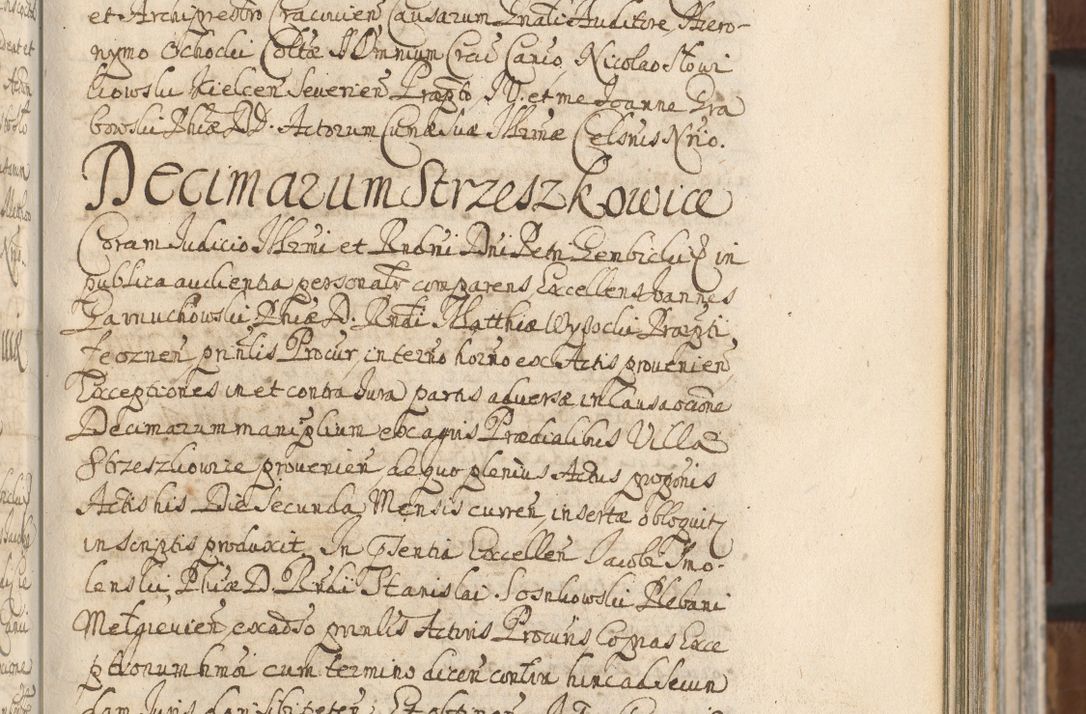 et Archipresbro Cracovien̄ Causarum Gn̄ali Auditore, Hiero-
nymo Ochocki Coll̄tæ OOmnium Crac̄ Can̄co, Nicolao Słowi
kowski Kielcen̄ Severien̄ Præp̄to, JD. et me Joanne Gra
bowski Phiæ D. Actorum Curiæ Suæ Illr̄mæ Celsn̄is Nr̄io.
Decimarum Strzeszkowice
Coram Judicio Illr̄mi et Rn̄dmi Dn̄i Petri Gembicki E in
publica audientia personalr̄ comparens Excellens Joannes
Garnuchowski Phiæ D. Rn̄di Matthiæ Wysocki Præp̄ti
Teoznen̄ prin̄lis Procur̄ in tern̄o horn̄o ex Actis provenien̄
Exceptiones in et contra Jura partis adversæ in Causa ōcc̄one
Decimarum manip̄lium ex agris Prædialibus Villæ
Strzeszkowice provenien̄ de quo plenius Actus propōnis
Actis his Die Secunda Mensis curren̄ insertæ obloquit̄
in scriptis produxit, In p̄sentia Excellen̄ Jacobi Smo-
lenski, Phiæ D. Rn̄di Stanislai Sosnkowski Plebani
Mełgievien̄ ex ad̄so prin̄lis Actoris Procur̄is Copias Exce
ptionum hm̄oi cum termino dicen̄ contra hinc ad Secun
dam Juris